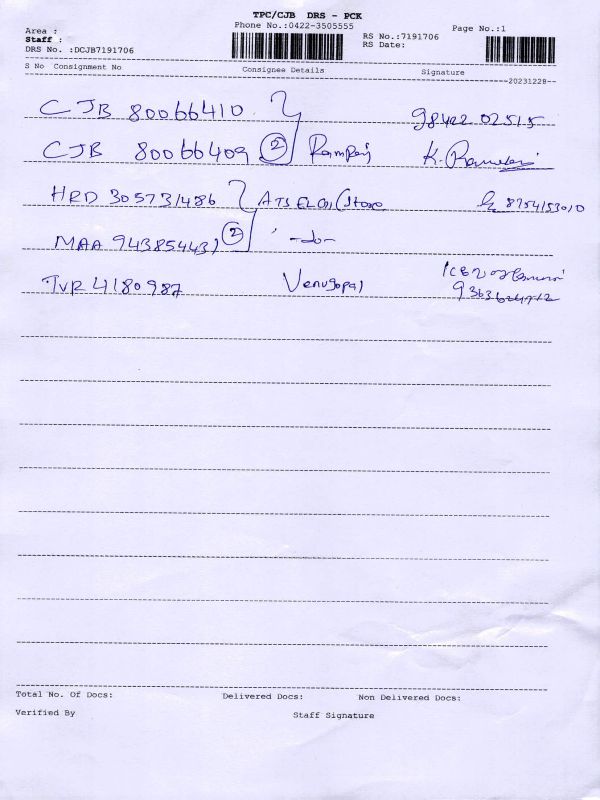 TPC/CJB DRS - PCK
Area : Phone No.:0422-3505555 Page No.:1
Staff : RS No.:7191706
DRS No. :DCJB7191706 RS Date:
S No Consignment No Consignee Details Signature
20231228
CJB 80066410 98422 02515
CJB 80066409 2 Ramraj K. 
HRD 305731486 ATS ELGI (Store 8754153010
MAA 943854431 2 -do-
TVR 4180987 Venugopal
Total No. Of Docs: Delivered Docs: Non Delivered Docs:
Verified By Staff Signature